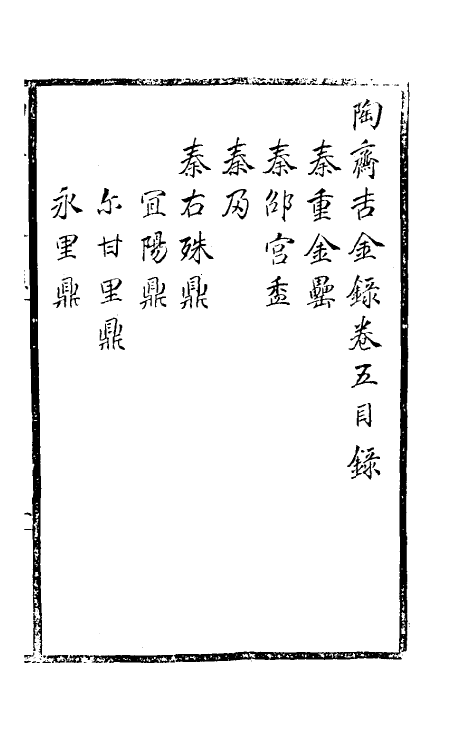 陶齋吉金錄卷五目錄
秦重金罍
秦邵宮盉
秦
秦右殊鼎
宜陽鼎
尒甘里鼎
永里鼎